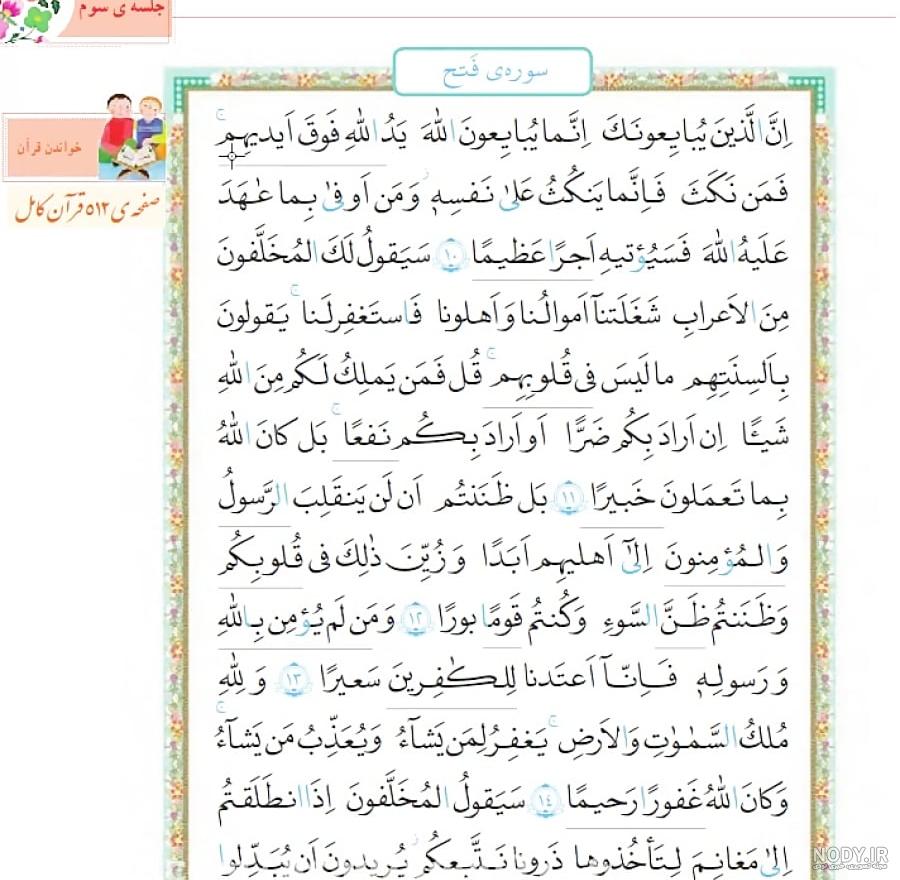 جلسه ی سوم
سوره‌ی فَتح
اِنَّ الَّذینَ یُبایِعونَكَ اِنَّما یُبایِعونَ اللّٰهَ یَدُ اللّٰهِ فَوقَ اَیدیهِم ۚ
خواندن قرآن
صفحه‌ی ۵۱۲ قرآن کامل
فَمَن نَكَثَ فَاِنَّما یَنكُثُ عَلیٰ نَفسِه۪ ۖ وَ مَن اَوفیٰ بِما عٰهَدَ
عَلَیهُ اللّٰهَ فَسَیُؤتیهِ اَجرًا عَظیمًا ۱۰ سَیَقولُ لَكَ المُخَلَّفونَ
مِنَ الاَعرابِ شَغَلَتنآ اَموالُنا وَ اَهلونا فَاستَغفِر لَنا ۚ یَقولونَ
بِاَلسِنَتِهِم ما لَیسَ فی قُلوبِهِم ۚ قُل فَمَن یَملِكُ لَكُم مِنَ اللّٰهِ
شَیـًٔا اِن اَرادَ بِكُم ضَرًّا اَو اَرادَ بِكُم نَفعًا ۚ بَل كانَ اللّٰهُ
بِما تَعمَلونَ خَبیرًا ۱۱ بَل ظَنَنتُم اَن لَن یَنقَلِبَ الرَّسولُ
وَ المُؤمِنونَ اِلیٰٓ اَهلیهِم اَبَدًا وَ زُیِّنَ ذٰلِكَ فی قُلوبِكُم
وَ ظَنَنتُم ظَنَّ السَّوءِ وَ كُنتُم قَومًا بورًا ۱۲ وَ مَن لَم یُؤمِن بِاللّٰهِ
وَ رَسولِه۪ فَاِنّآ اَعتَدنا لِلكٰفِرینَ سَعیرًا ۱۳ وَ لِلّٰهِ
مُلكُ السَّمٰوٰتِ وَ الاَرضِ ۚ یَغفِرُ لِمَن یَشآءُ وَ یُعَذِّبُ مَن یَشآءُ ۚ
وَ كانَ اللّٰهُ غَفورًا رَحیمًا ۱٤ سَیَقولُ المُخَلَّفونَ اِذَا انطَلَقتُم
اِلیٰ مَغانِمَ لِتَأخُذوها ذَرونا نَتَّبِعكُم ۖ یُریدونَ اَن یُبَدِّلوا
NODY.IR